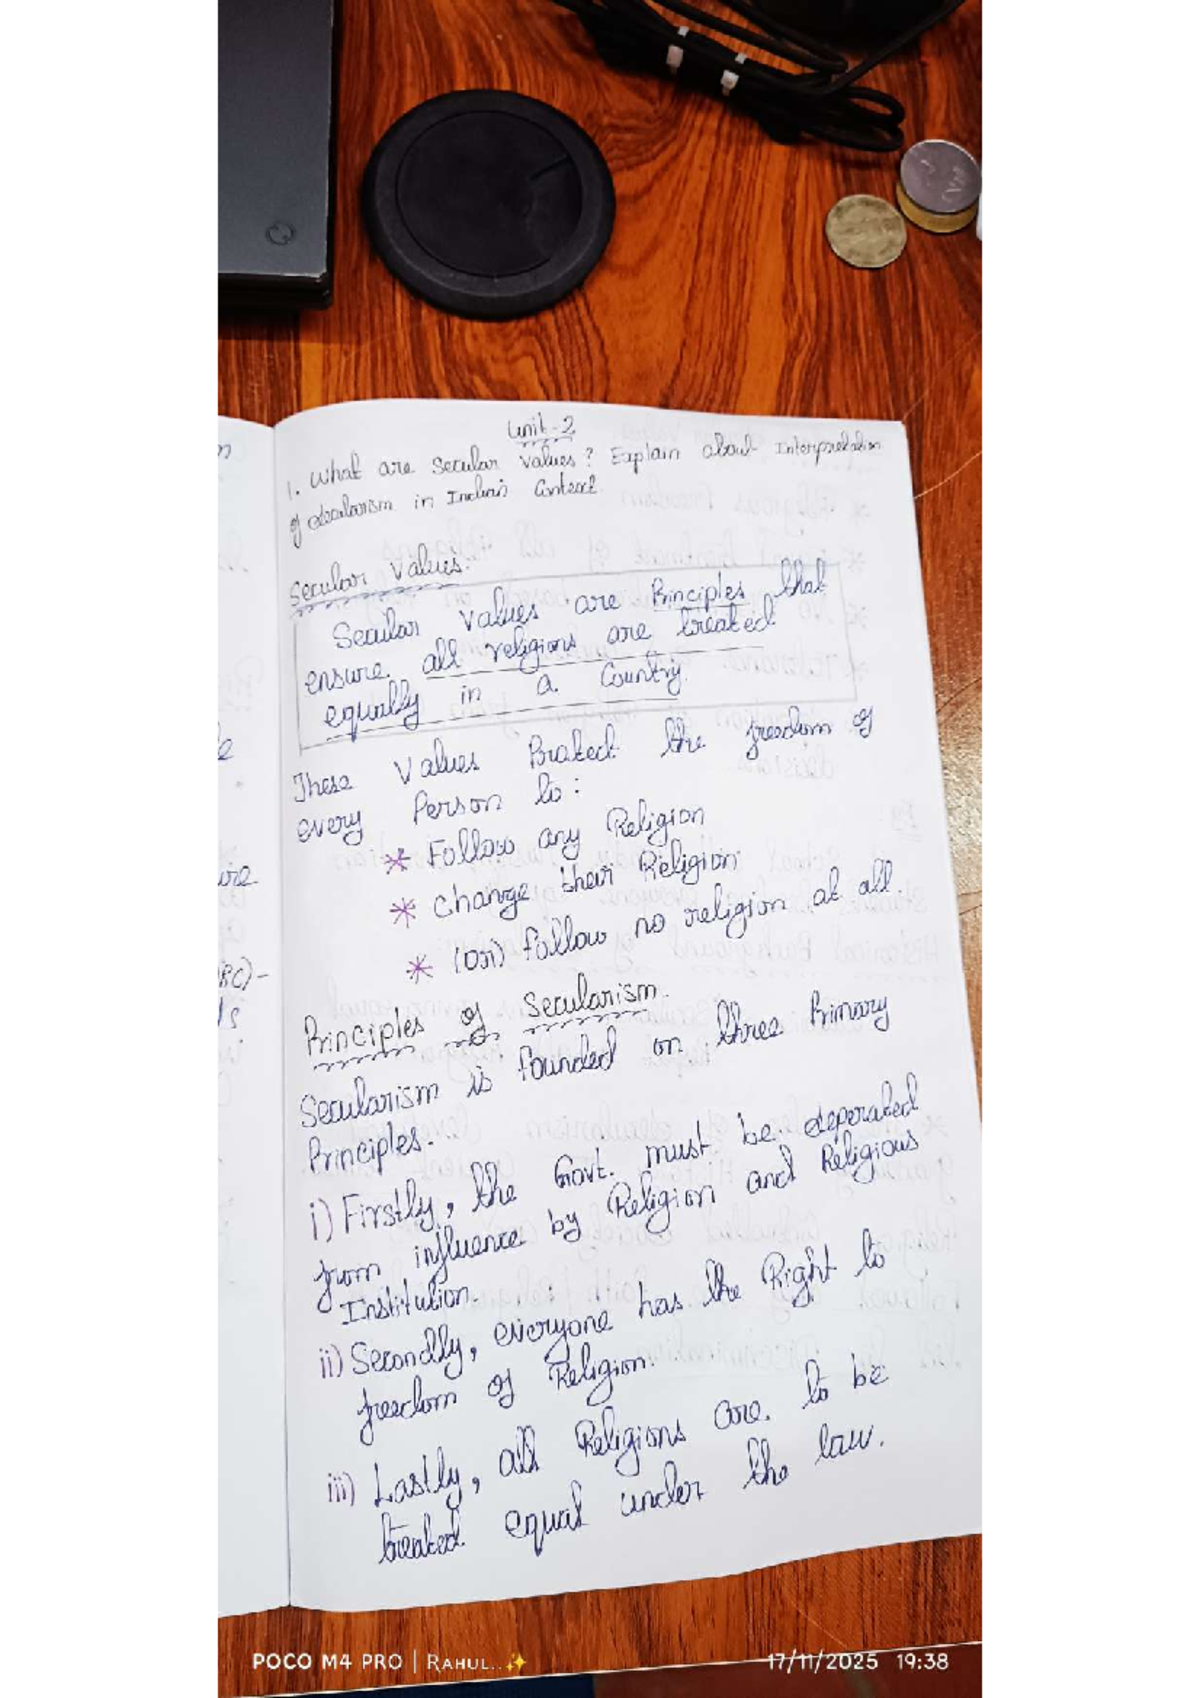 Unit-2
1. What are Secular Values? Explain about Interpretation
of Secularism in Indian Context
Secular Values:
Secular Values are Principles that
ensure all religions are treated
equally in a Country.
These Values Protect the freedom of
every Person to:
* Follow any Religion
* Change their Religion
* (or) follow no religion at all.
Principles of Secularism.
Secularism is founded on three Primary
Principles.
i) Firstly, the Govt. must be seperated
from influence by Religion and Religious
Institution.
ii) Secondly, everyone has the Right to
freedom of Religion.
iii) Lastly, all Religions are to be
treated equal under the law.
POCO M4 PRO | RAHUL..✨
17/11/2025 19:38